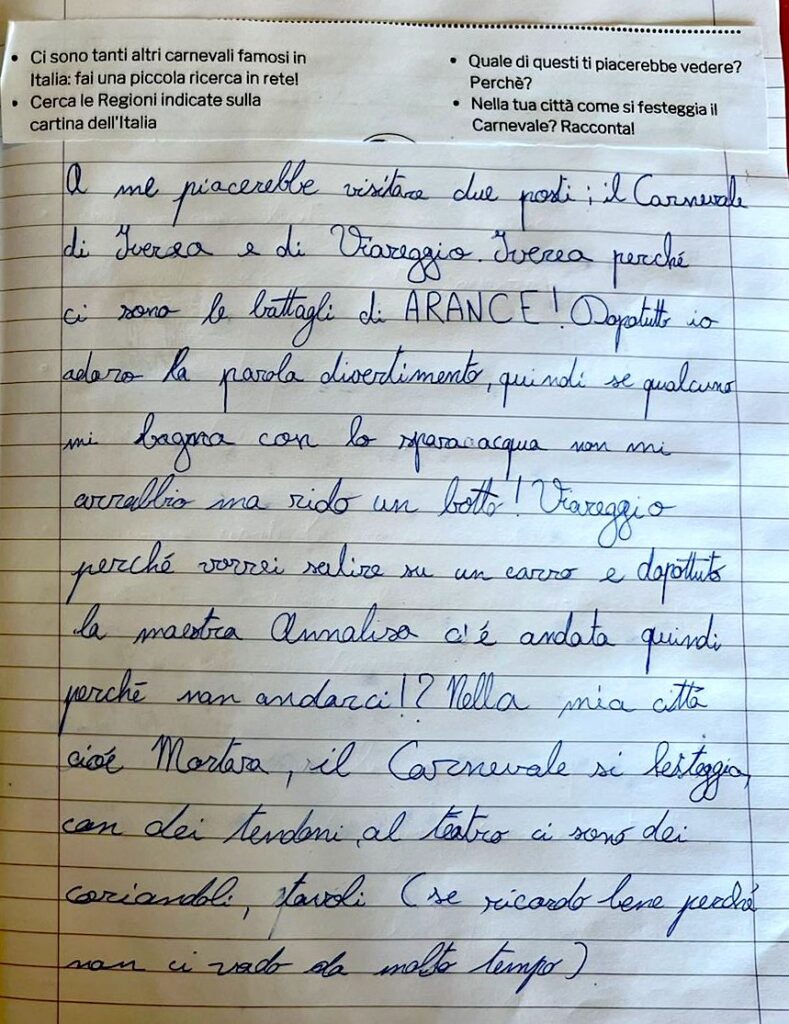 • Ci sono tanti altri carnevali famosi in
Italia: fai una piccola ricerca in rete!
• Cerca le Regioni indicate sulla
cartina dell'Italia
• Quale di questi ti piacerebbe vedere?
Perchè?
• Nella tua città come si festeggia il
Carnevale? Racconta!
A me piacerebbe visitare due posti; il Carnevale
di Iverea e di Viareggio. Iverea perché
ci sono le battagli di ARANCE! Dopotutto io
adoro la parola divertimento, quindi se qualcuno
mi bagna con lo sparaacqua non mi
arrabbio ma rido un botto! Viareggio
perché vorrei salire su un carro e dopottuto
la maestra Annalisa c'é andata quindi
perché non andarci!? Nella mia città
cioé Mortara, il Carnevale si festeggia,
con dei tendoni, al teatro ci sono dei
coriandoli, tavoli (se ricordo bene perché
non ci vado da molto tempo)